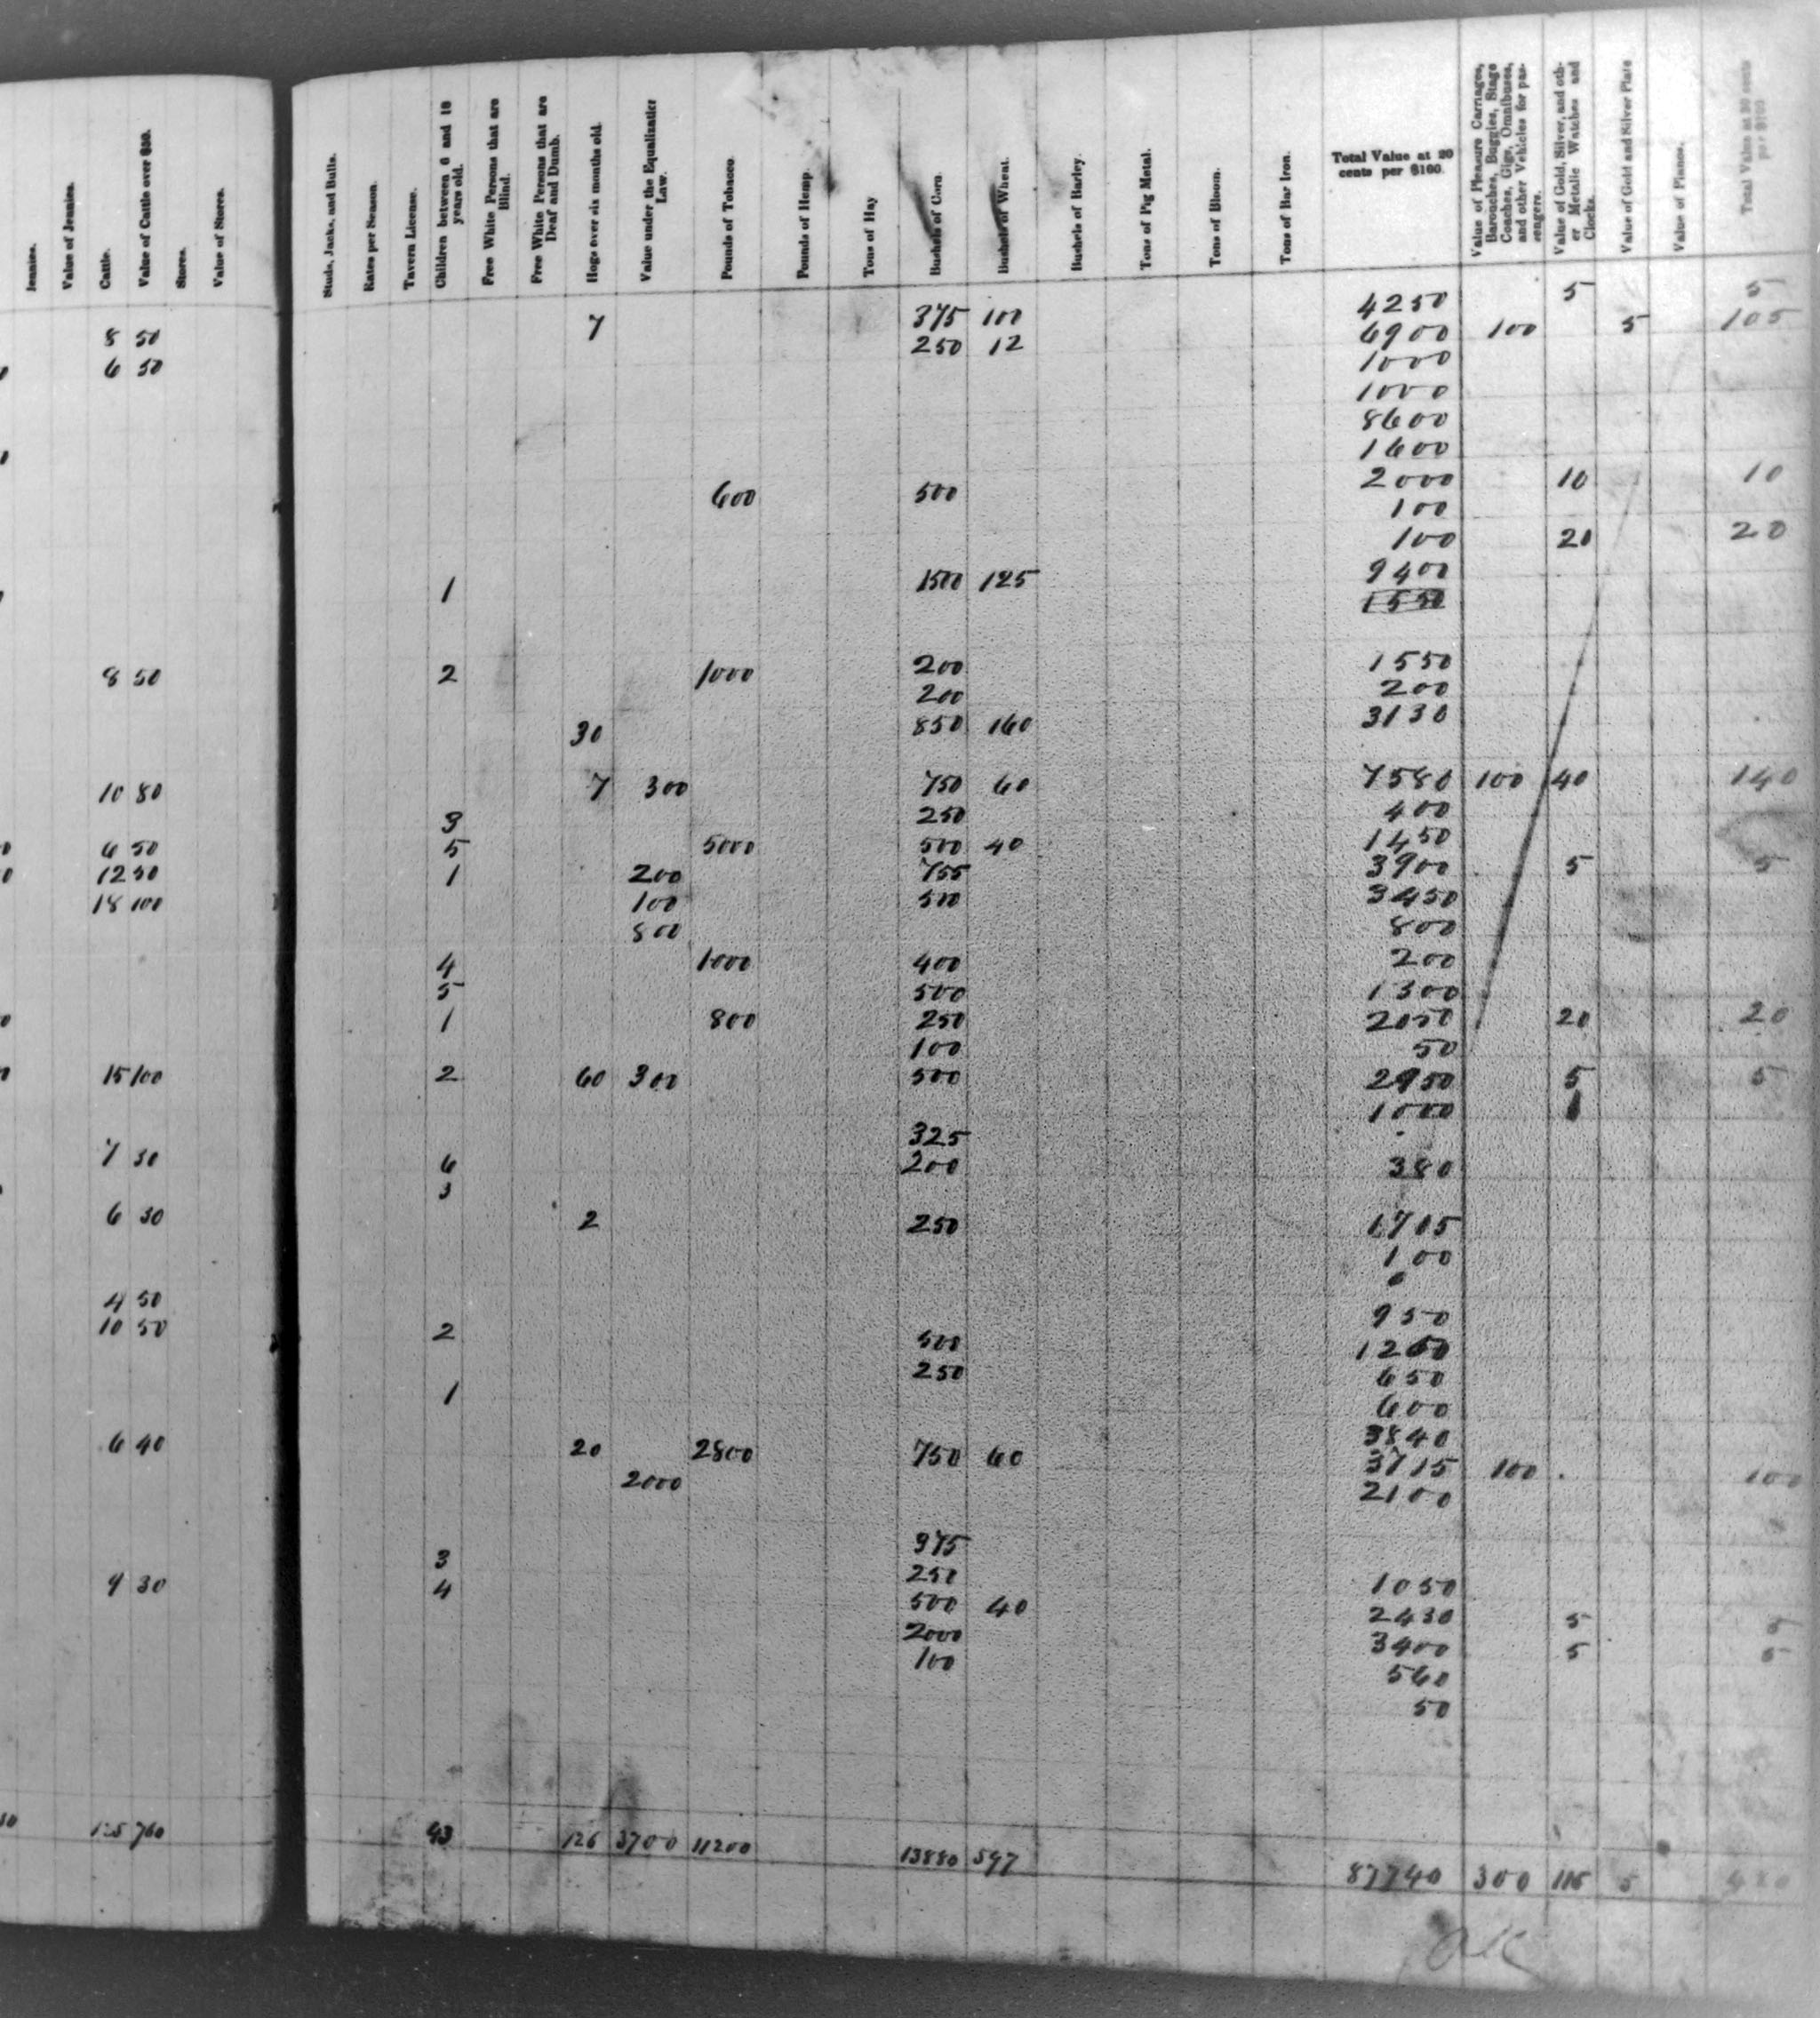 Jennies.
Value of Jennies.
Cattle.
Value of Cattle over $50.
Stores.
Value of Stores.
Studs, Jacks, and Bulls.
Rates per Season.
Tavern License.
Children between 6 and 18 years old.
Free White Persons that are Blind.
Free White Persons that are Deaf and Dumb.
Hogs over six months old.
Value under the Equalization Law.
Pounds of Tobacco.
Pounds of Hemp.
Tons of Hay
Bushels of Corn.
Bushels of Wheat.
Bushels of Barley.
Tons of Pig Metal.
Tons of Bloom.
Tons of Bar Iron.
Total Value at 20 cents per $100.
Value of Pleasure Carriages, Barouches, Buggies, Stage Coaches, Gigs, Omnibuses, and other Vehicles for passengers.
Value of Gold, Silver, and other Metalic Watches and Clocks.
Value of Gold and Silver Plate
Value of Pianos.
Total Value at 30 cents per $100
4250 5 5
8 50 7 375 100 6900 100 5 105
6 50 250 12 1000
1000
8600
1600
2000 10 10
600 500 100
100 20 20
9400
1 1500 125 1550
8 50 2 1000 200 1550
200 200
30 850 160 3130
10 80 7 300 750 60 7580 100 40 140
3 250 400
6 50 5 5000 500 40 1450
12 50 1 200 755 3900 5 5
18 100 100 500 3450
800 800
4 1000 400 200
5 500 1300
1 800 250 2050 20 20
100 50
15 100 2 60 300 500 2950 5 5
1000
325
7 30 6 200 380
3
6 30 2 250 1715
100
4 50 950
10 50 2 500 1200
250 650
1 600
3840
6 40 20 2800 750 60 3715 100 100
2000 2100
3 975
9 30 4 250 1050
500 40 2430 5 5
2000 3400 5 5
100 560
50
125 760 43 126 3700 11200 13880 597 87740 300 115 5 420
OK